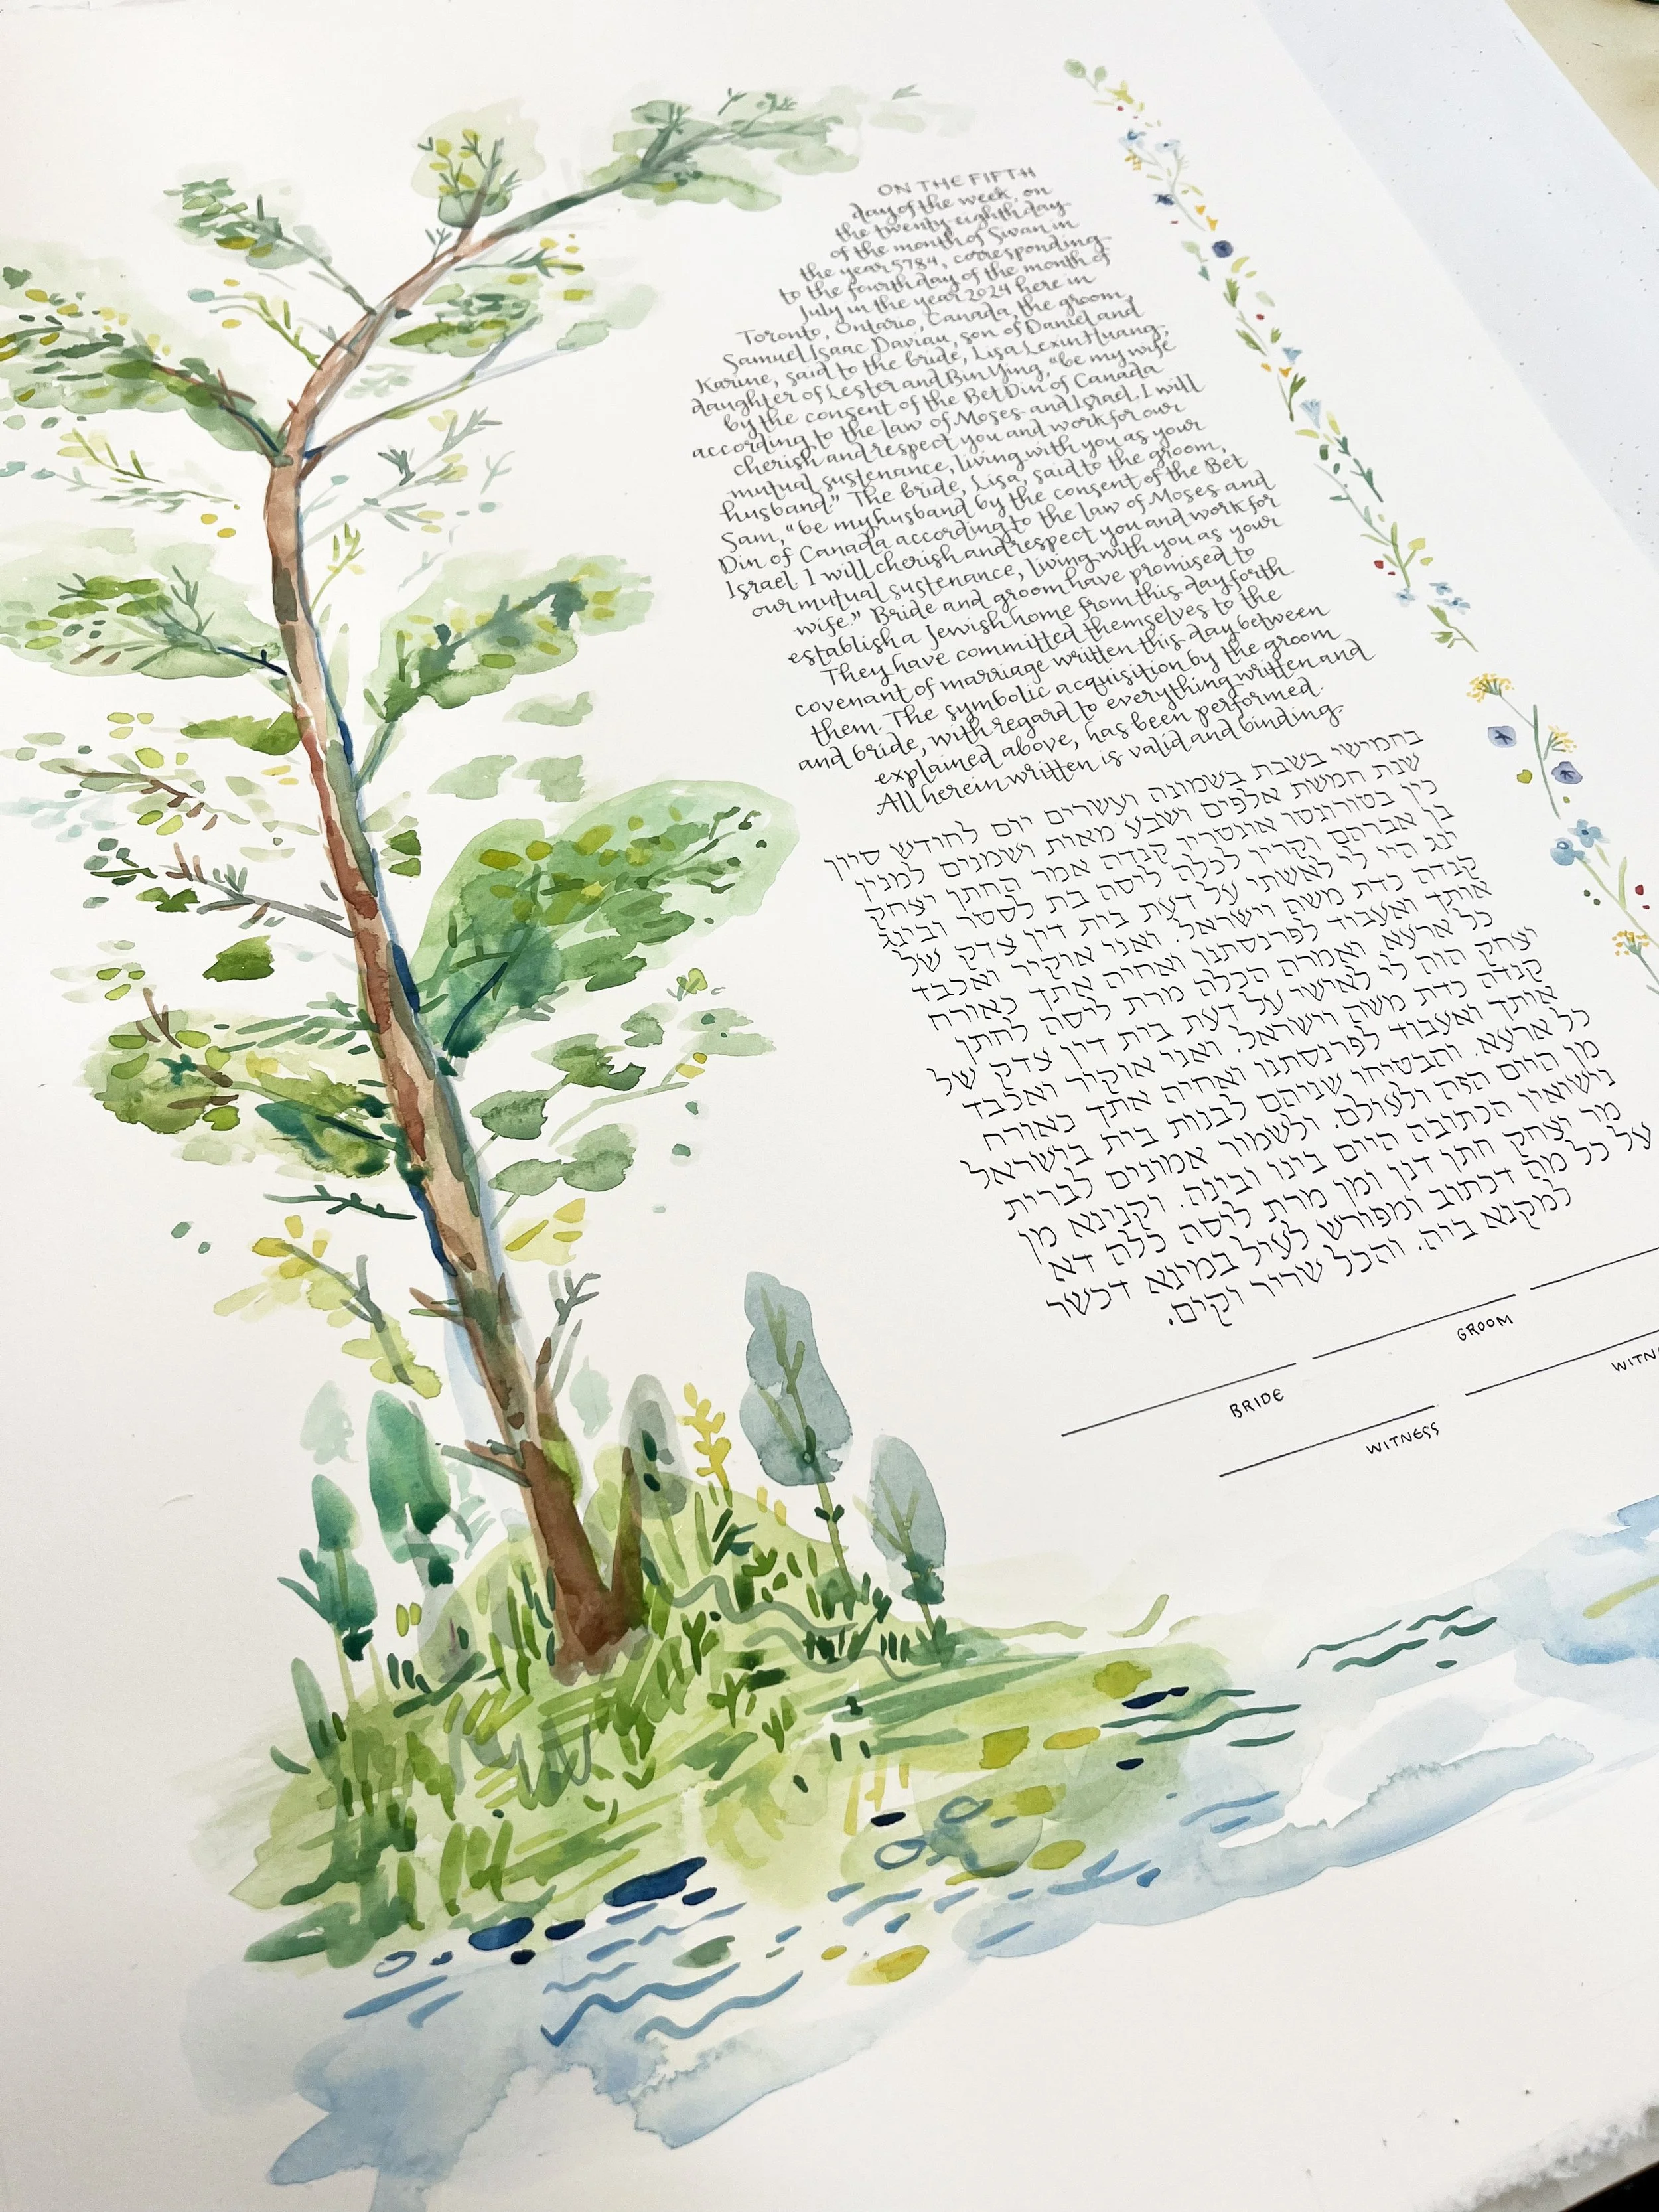 ON THE FIFTH
day of the week, on
the twenty-eighth day
of the month of Sivan in
the year 5784, corresponding
to the fourth day of the month of
July in the year 2024 here in
Toronto, Ontario, Canada, the groom,
Samuel Isaac Daviau, son of Daniel and
Karine, said to the bride, Lisa Lexin Huang,
daughter of Lester and Bin Ying, "be my wife
by the consent of the Bet Din of Canada
according to the law of Moses and Israel. I will
cherish and respect you and work for our
mutual sustenance, living with you as your
husband." The bride, Lisa, said to the groom,
Sam, "be my husband by the consent of the Bet
Din of Canada according to the law of Moses and
Israel. I will cherish and respect you and work for
our mutual sustenance, living with you as your
wife." Bride and groom have promised to
establish a Jewish home from this day forth.
They have committed themselves to the
covenant of marriage written this day between
them. The symbolic acquisition by the groom
and bride, with regard to everything written and
explained above, has been performed.
All herein written is valid and binding.
בחמישי בשבת בשמונה ועשרים יום לחודש סיון
שנת חמשת אלפים ושבע מאות ושמנים למנין
כין בטורונטו אונטריו קנדה אמר החתן יצחק
בן אברהם וקרין לכלה ליסה בת לססר ובינג
ינג הוי לי לאשתי על דעת בית דין צדק של
קנדה כדת משה וישראל. ואני אוקיר ואכבד
אותך ואעבוד לפרנסתנו ואחיה אתך כאורח
כל ארעא ואמרה הכלה מרת ליסה לחתן
יצחק הוה לי לאישי על דעת בית דין צדק של
קנדה כדת משה וישראל. ואני אוקיר ואכבד
אותך ואעבוד לפרנסתנו ואחיה אתך כאורח
כל ארעא. והבטיחו שניהם לבנות בית בישראל
מן היום הזה ולעולם. ולשמור אמונים לברית
נישואין הכתיבה היום בינו ובינה. וקנינא מן
מר יצחק חתן דנן ומן מרת ליסה כלה דא
על כל מה דכתוב ומפורש לעיל במינא דכשר
למקנא ביה. והכל שריר וקים.
BRIDE GROOM
WITNESS WITN